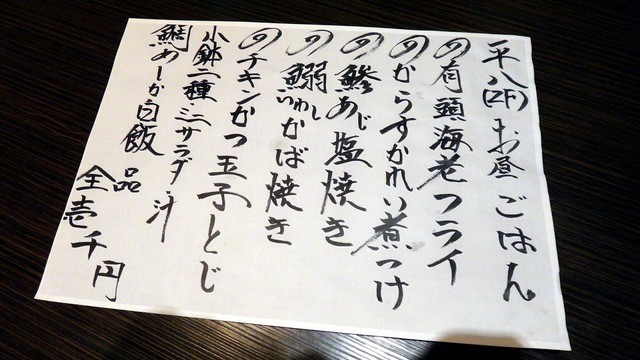 平八(2F)お昼ごはん
の有頭海老フライ
のからすかれい煮つけ
の鯵あじ塩焼き
の鰯いわしかば焼き
のチキンかつ玉子とじ
小鉢二種・ミニサラダ・汁
鯛めしか白飯
全品
壱千円